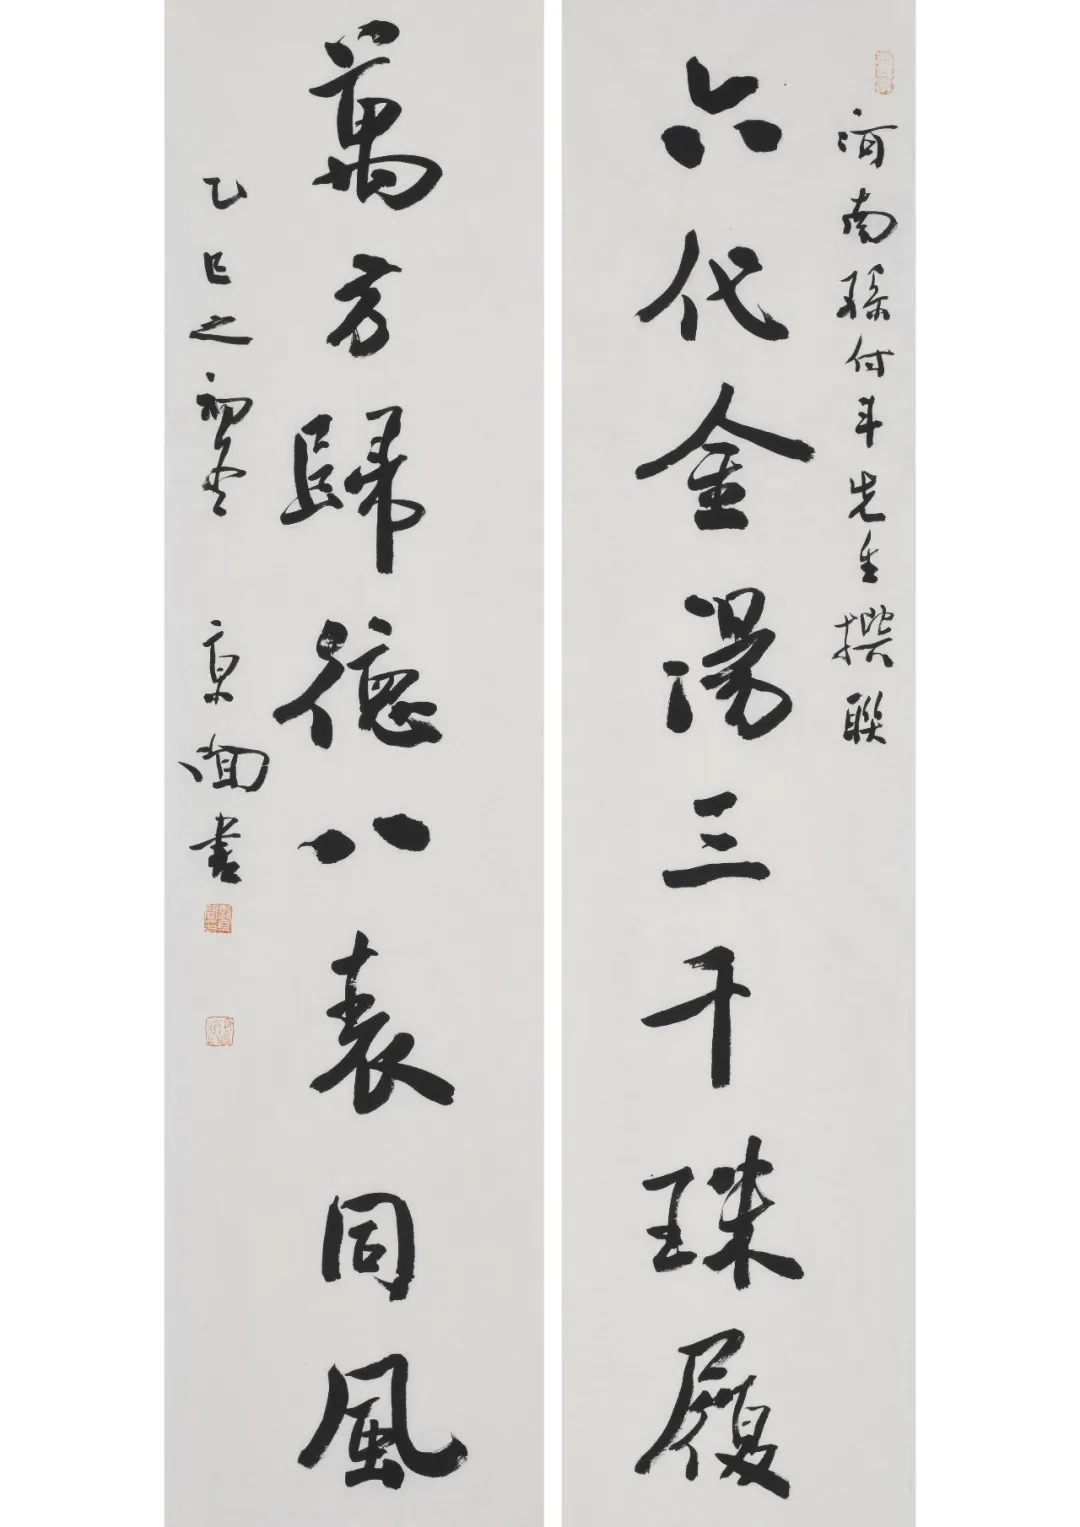 河南孫付斗先生撰聯
六代金湯三千珠履
萬方歸德八表同風
乙巳之初冬 京面書